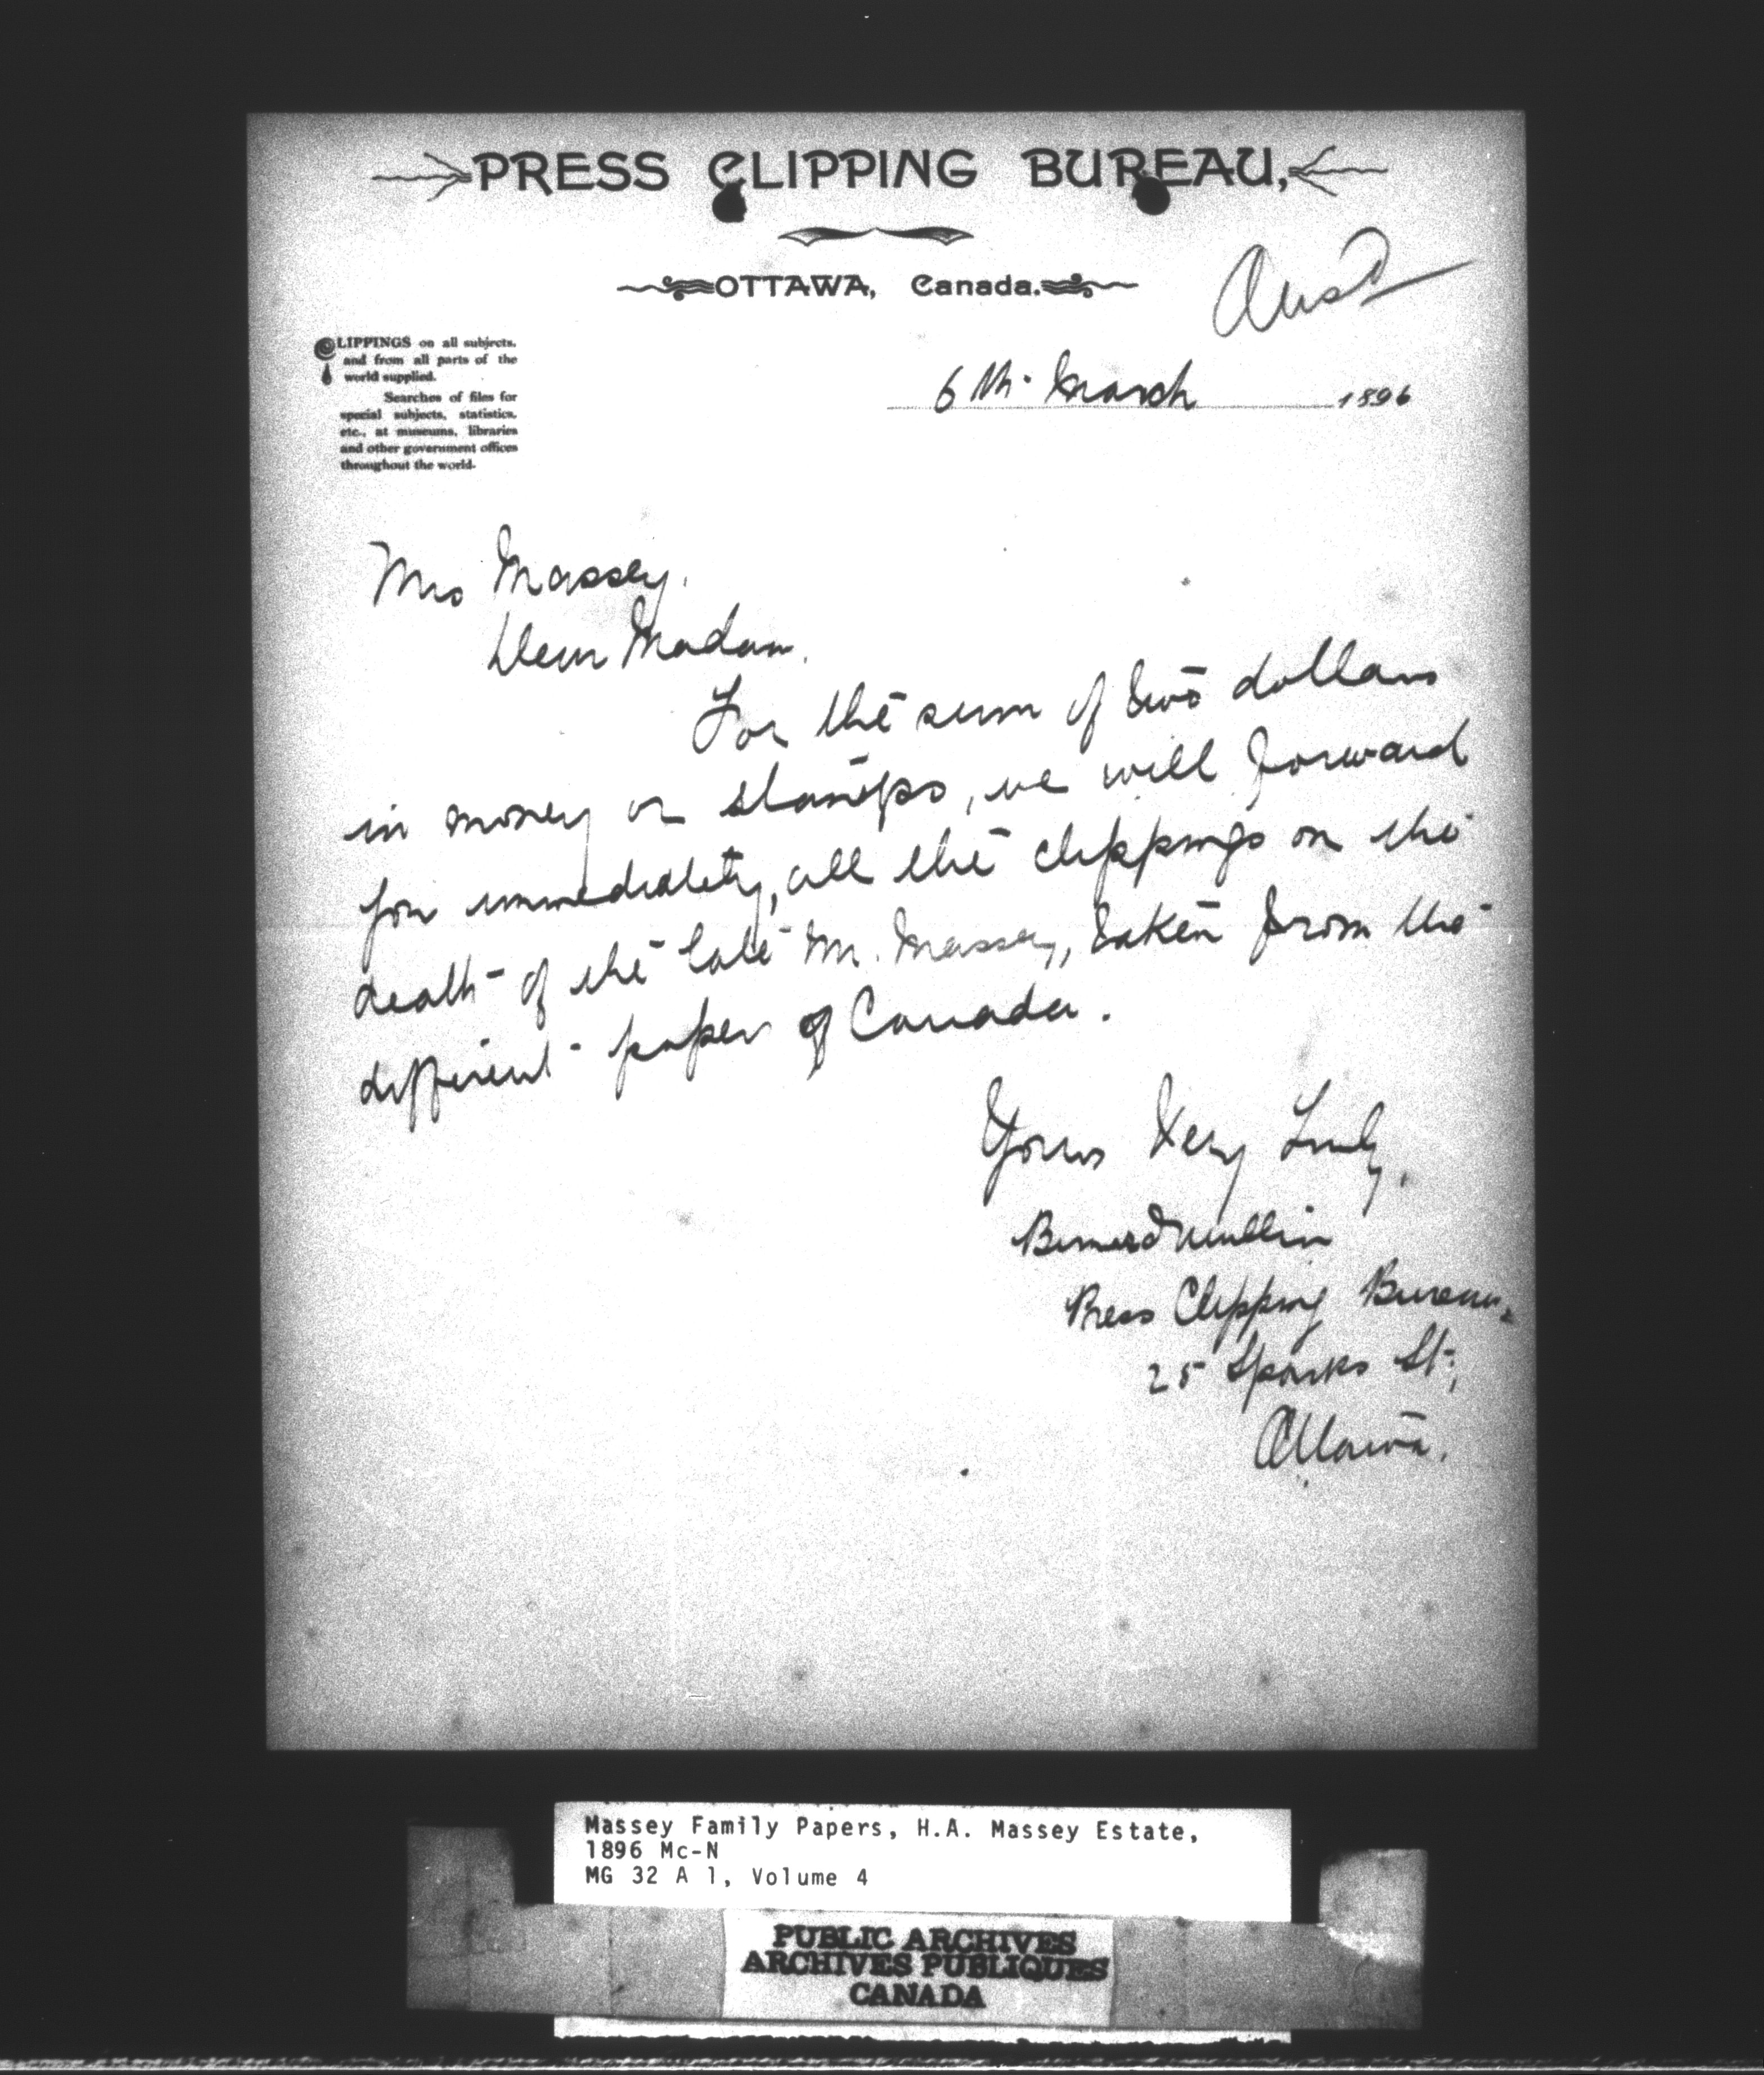 PRESS CLIPPING BUREAU,
OTTAWA, Canada.
Ansd
CLIPPINGS on all subjects,
and from all parts of the
world supplied.
Searches of files for
special subjects, statistics,
etc., at museums, libraries
and other government offices
throughout the world.
6th. March 1896
Mrs Massey.
Dear Madam.
For the sum of two dollars
in money or stamps, we will forward
you immediately, all the clippings on the
death of the late Mr. Massey, taken from the
different paper of Canada.
Yours Very Truly,
Bernard Mullin
Press Clipping Bureau,
25 Sparks St.,
Ottawa.
Massey Family Papers, H.A. Massey Estate,
1896 Mc-N
MG 32 A 1, Volume 4
PUBLIC ARCHIVES
ARCHIVES PUBLIQUES
CANADA